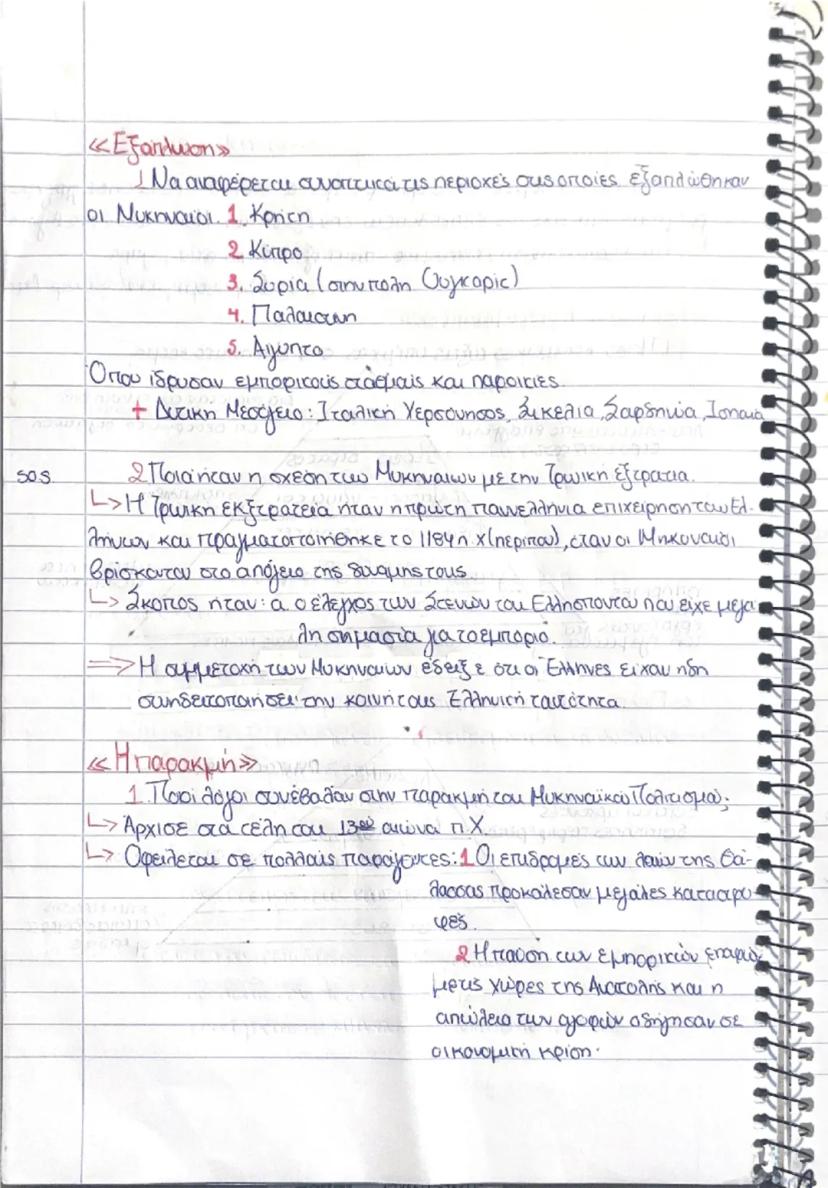 ≪Εξάπλωση≫
1 Να αναφέρεται συνοπτικά τις περιοχές στις οποίες εξαπλώθηκαν
οι Μυκηναίοι. 1. Κρήτη
2. Κύπρο
3. Συρία (στην πόλη Ουγκαρίς)
4. Παλαιστίνη
5. Αίγυπτο
Όπου ίδρυσαν εμπορικούς σταθμούς και παροικίες.
+ Δυτική Μεσόγειο: Ιταλική Χερσόνησος, Σικελία, Σαρδηνία, Ισπανία
sos. 2. Ποια ήταν η σχέση των Μυκηναίων με την Τρωική έξτρατια.
↳ Η Τρωική εκξτρατεία ήταν η πρώτη πανελλήνια επιχείρηση των Ελ-
λήνων και πραγματοποιήθηκε το 1184 π.χ (περίπου), όταν οι Μηκυναίοι
βρίσκονταν στο απόγειο της δύναμης τους
↳ Σκοπός ήταν: α. ο έλεγχος των Στενών του Ελλησπόντου που είχε μεγά
λη σημασία για το εμπόριο.
⇒ Η συμμετοχή των Μυκηναίων έδειξε ότι οι Έλληνες είχαν ήδη
συνηδειτοποιήσει την κοινή τους Ελληνική ταυτότητα
≪Η παρακμή≫
1. Ποιοί λόγοι συνέβαλαν στην παρακμή του Μυκηναϊκού Πολιτισμού;
↳ Άρχισε στα τέλη του 13ου αιώνα π.Χ.
↳ Οφείλεται σε πολλούς παράγοντες: 1 Οι επιδρομές των λαών της Θά-
λασσας προκάλεσαν μεγάλες καταστρο
φές.
2 Η παύση των εμπορικών επαφών
με τις χώρες της Ανατολής και η
απώλεια των αγορών οδήγησαν σε
οικονομική κρίση.